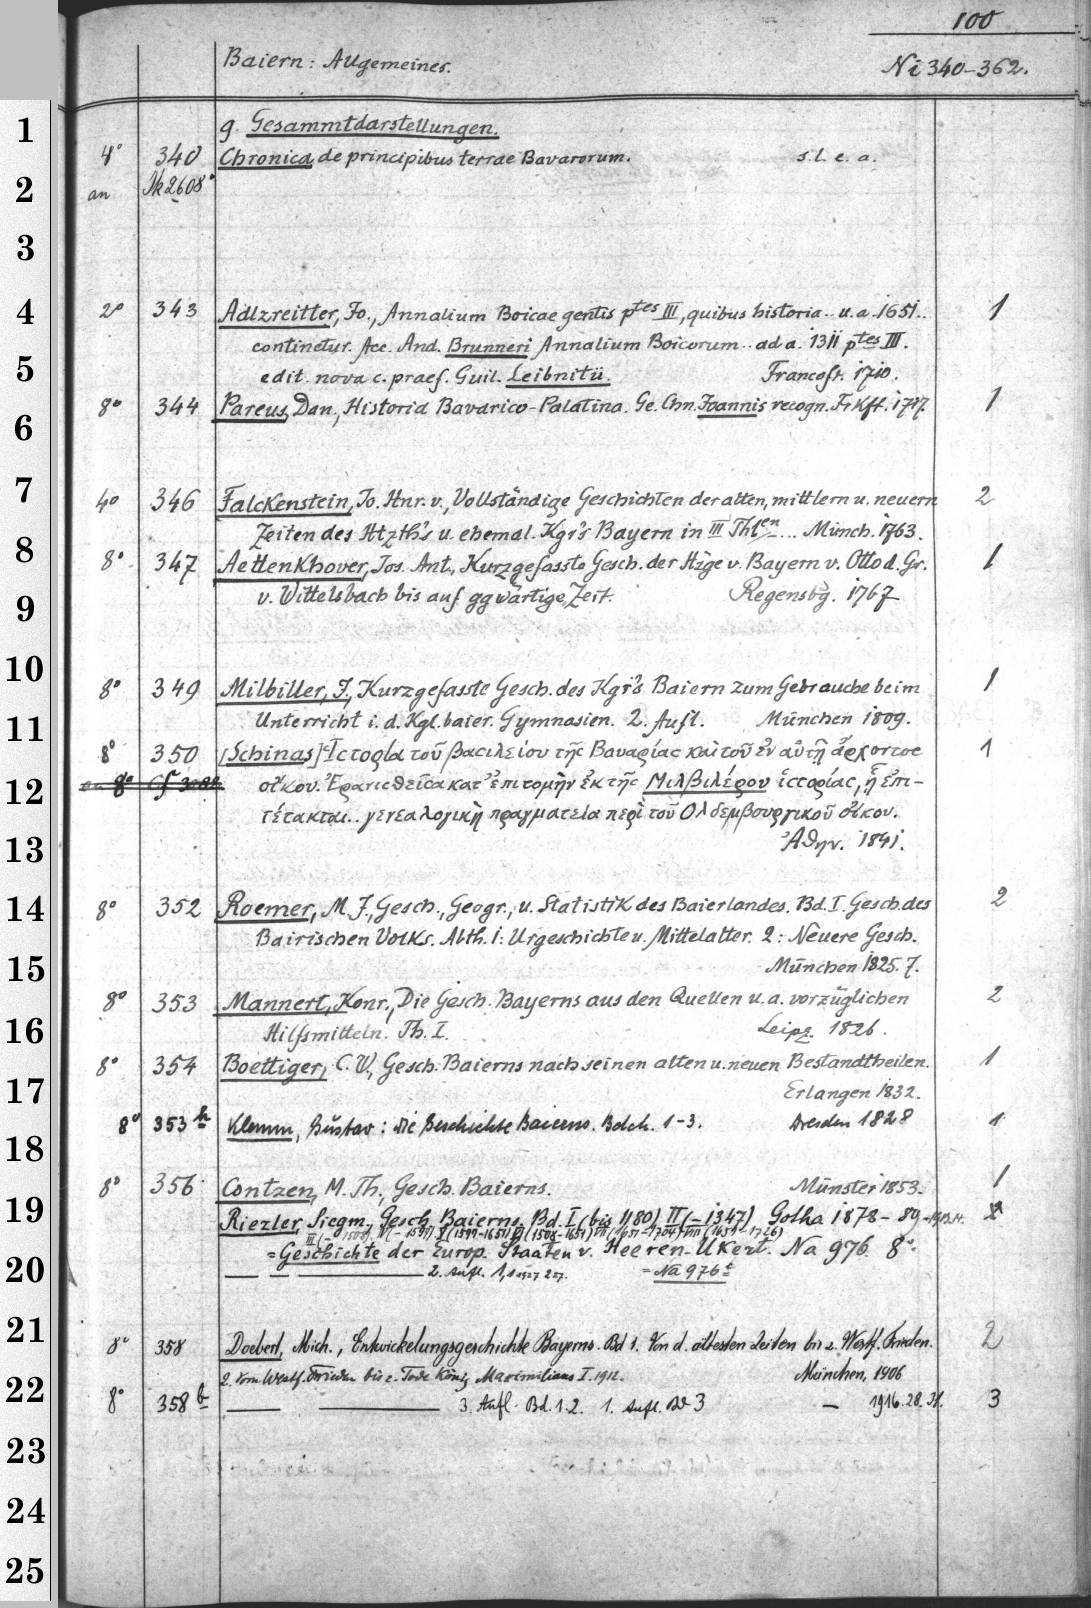 100
Baiern: Allgemeines. Ni 340-362.
1
g. Gesammtdarstellungen.
4° 340 Chronica de principibus terrae Bavarorum. s. l. e. a.
2 an Nk 2608°
3
4 2° 343 Adlzreitter, Jo., Annalium Boicae gentis ptes III, quibus historia .. u. a. 1651..
continetur. Acc. And. Brunneri Annalium Boicorum .. ad a. 1311 ptes III. 1
5 edit. nova c. praef. Guil. Leibnitii. Francoft. 1710.
8° 344 Pareus, Dan., Historia Bavarico-Palatina. Ge. Chn. Joannis recogn. Frkft. 1717. 1
6
7 4° 346 Falckenstein, Jo. Hnr. v., Vollständige Geschichten der alten, mittlern u. neuern 2
8 Zeiten des Htzth's u. ehemal. Kgr's Bayern in III Thlen ... Münch. 1763.
8° 347 Aettenkhover, Jos. Ant., Kurzgefasste Gesch. der Hzge v. Bayern v. Otto d. Gr. 1
9 v. Wittelsbach bis auf ggwärtige Zeit. Regensbg. 1767
10 8° 349 Milbiller, J., Kurzgefasste Gesch. des Kgr's Baiern zum Gebrauche beim 1
11 Unterricht i. d. Kgl. baier. Gymnasien. 2. Aufl. München 1809.
8° 350 [Schinas] Ἱστορία τοῦ βασιλείου τῆς Βαυαρίας καὶ τοῦ ἐν αὐτῇ ἄρχοντος 1
12 οἴκου. Ἐρανισθεῖσα κατ' ἐπιτομὴν ἐκ τῆς Μιλβιλέρου ἱστορίας, ᾗ ἐπι-
τέτακται .. γενεαλογικὴ πραγματεία περὶ τοῦ Ολδεμβουργικοῦ οἴκου.
13 Ἀθην. 1841.
14 8° 352 Roemer, M. J., Gesch., Geogr., u. Statistik des Baierlandes. Bd. I. Gesch. des 2
Bairischen Volks. Abth. 1: Urgeschichte u. Mittelalter. 2: Neuere Gesch.
15 München 1825. 7.
8° 353 Mannert, Konr., Die Gesch. Bayerns aus den Quellen u. a. vorzüglichen 2
16 Hilfsmitteln. Th. I. Leipz. 1826.
8° 354 Boettiger, C. W., Gesch. Baierns nach seinen alten u. neuen Bestandtheilen. 1
17 Erlangen 1832.
8° 353 h Klemm, Gustav: Die Geschichte Baierns. Bdch. 1-3. Dresden 1828 1
18
8° 356 Contzen, M. Th., Gesch. Baierns. Münster 1853. 1
19 Riezler, Siegm., Gesch. Baierns. Bd. I (bis 1180) II (-1347) Gotha 1878-89
= Geschichte der Europ. Staaten v. Heeren-Ukert. Na 976 8°.
20 — — — 2. Aufl. = Na 976
21 8° 358 Doeberl, Mich., Entwickelungsgeschichte Bayerns. Bd 1. Von d. ältesten Zeiten bis z. Westf. Frieden. 2
2. Vom Westf. Frieden bis z. Tode König Maximilians I. 1912. München, 1906
22 8° 358 b — — 3. Aufl. Bd. 1. 2. 1. Aufl. Bd 3 — 1916. 28. 31. 3
23
24
25